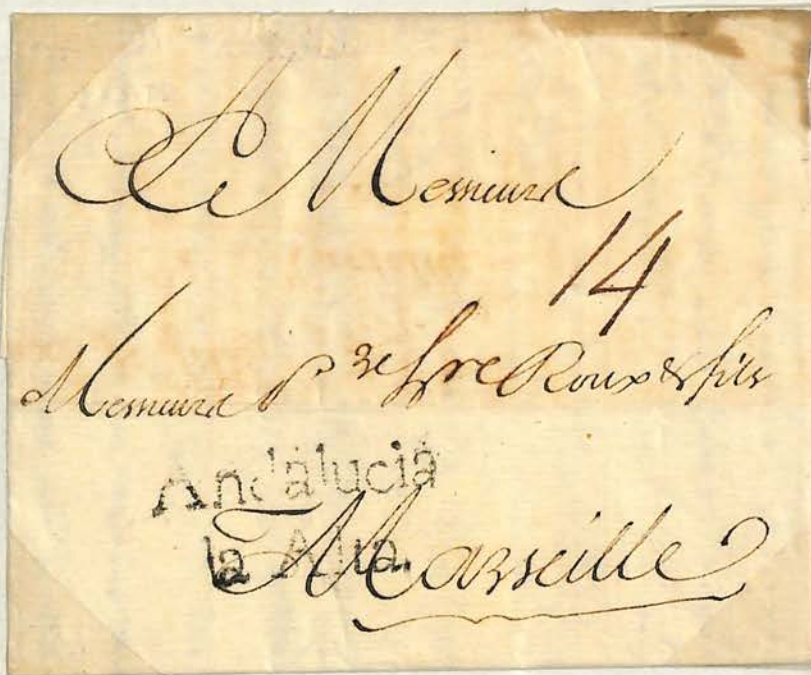 A Messieurs
14
Messieurs Roux & fils
Andalucia
la Alta.
Marseille